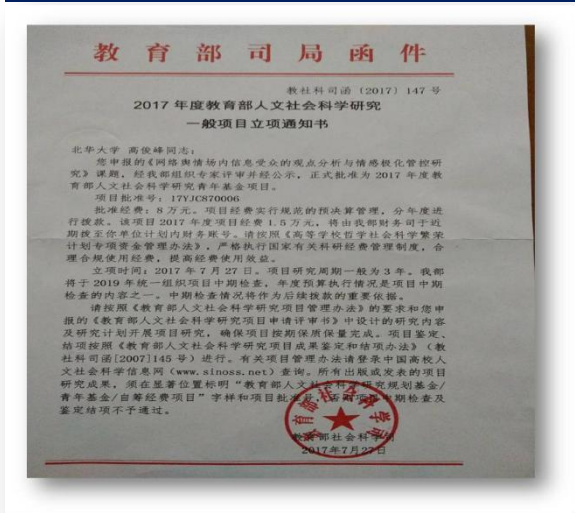 教育部司局函件
教社科司函〔2017〕147 号
2017 年度教育部人文社会科学研究
一般项目立项通知书
北华大学 高俊峰同志：
您申报的《网络舆情场内信息受众的观点分析与情感极化管控研
究》课题，经我部组织专家评审并经公示，正式批准为 2017 年度教
育部人文社会科学研究青年基金项目。
项目批准号：17YJC870006
批准经费：8 万元。项目经费实行规范的预决算管理，分年度进
行拨款。该项目 2017 年度项目经费 1.5 万元，将由我部财务司于近
期拨至你单位计划内财务账号。请按照《高等学校哲学社会科学繁荣
计划专项资金管理办法》，严格执行国家有关科研经费管理制度，合
理合规使用经费，提高经费使用效益。
立项时间：2017 年 7 月 27 日。项目研究周期一般为 3 年。我部
将于 2019 年统一组织项目中期检查，年度预算执行情况是项目中期
检查的内容之一。中期检查情况将作为后续拨款的重要依据。
请按照《教育部人文社会科学研究项目管理办法》的要求和您申
报的《教育部人文社会科学研究项目申请评审书》中设计的研究内容
及研究计划开展项目研究，确保项目按期保质保量完成。项目鉴定、
结项按照《教育部人文社会科学研究项目成果鉴定和结项办法》（教
社科司函[2007]145 号）进行。有关项目管理办法请登录中国高校人
文社会科学信息网（www.sinoss.net）查询。所有出版或发表的项目
研究成果，须在显著位置标明“教育部人文社会科学研究规划基金/
青年基金/自筹经费项目”字样和项目批准号，否则项目中期检查及
鉴定结项不予通过。
教育部社会科学司
2017年7月27日